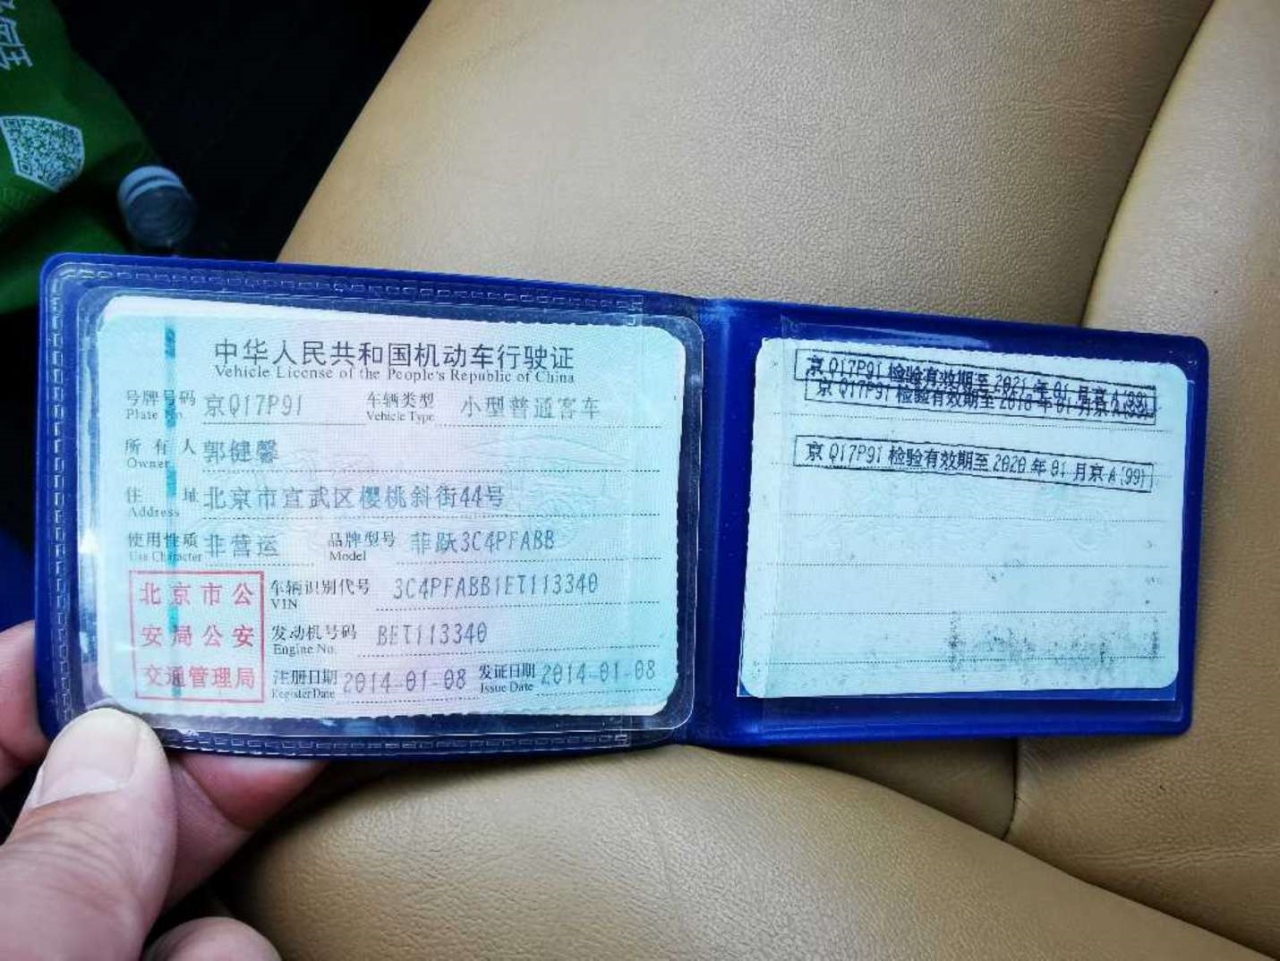 中华人民共和国机动车行驶证
Vehicle License of the People's Republic of China
号牌号码 京Q17P91 车辆类型 小型普通客车
Plate No. Vehicle Type
所有人 郭健馨
Owner
住址 北京市宣武区樱桃斜街44号
Address
使用性质 非营运 品牌型号 菲跃3C4PFABB
Use Character Model
车辆识别代号 3C4PFABB1ET113340
VIN
发动机号码 BET113340
Engine No.
注册日期 2014-01-08 发证日期 2014-01-08
Register Date Issue Date
北京市公
安局公安
交通管理局
京Q17P91检验有效期至2021年01月京A(99)
京Q17P91检验有效期至2018年01月京A
京Q17P91检验有效期至2020年01月京A(99)